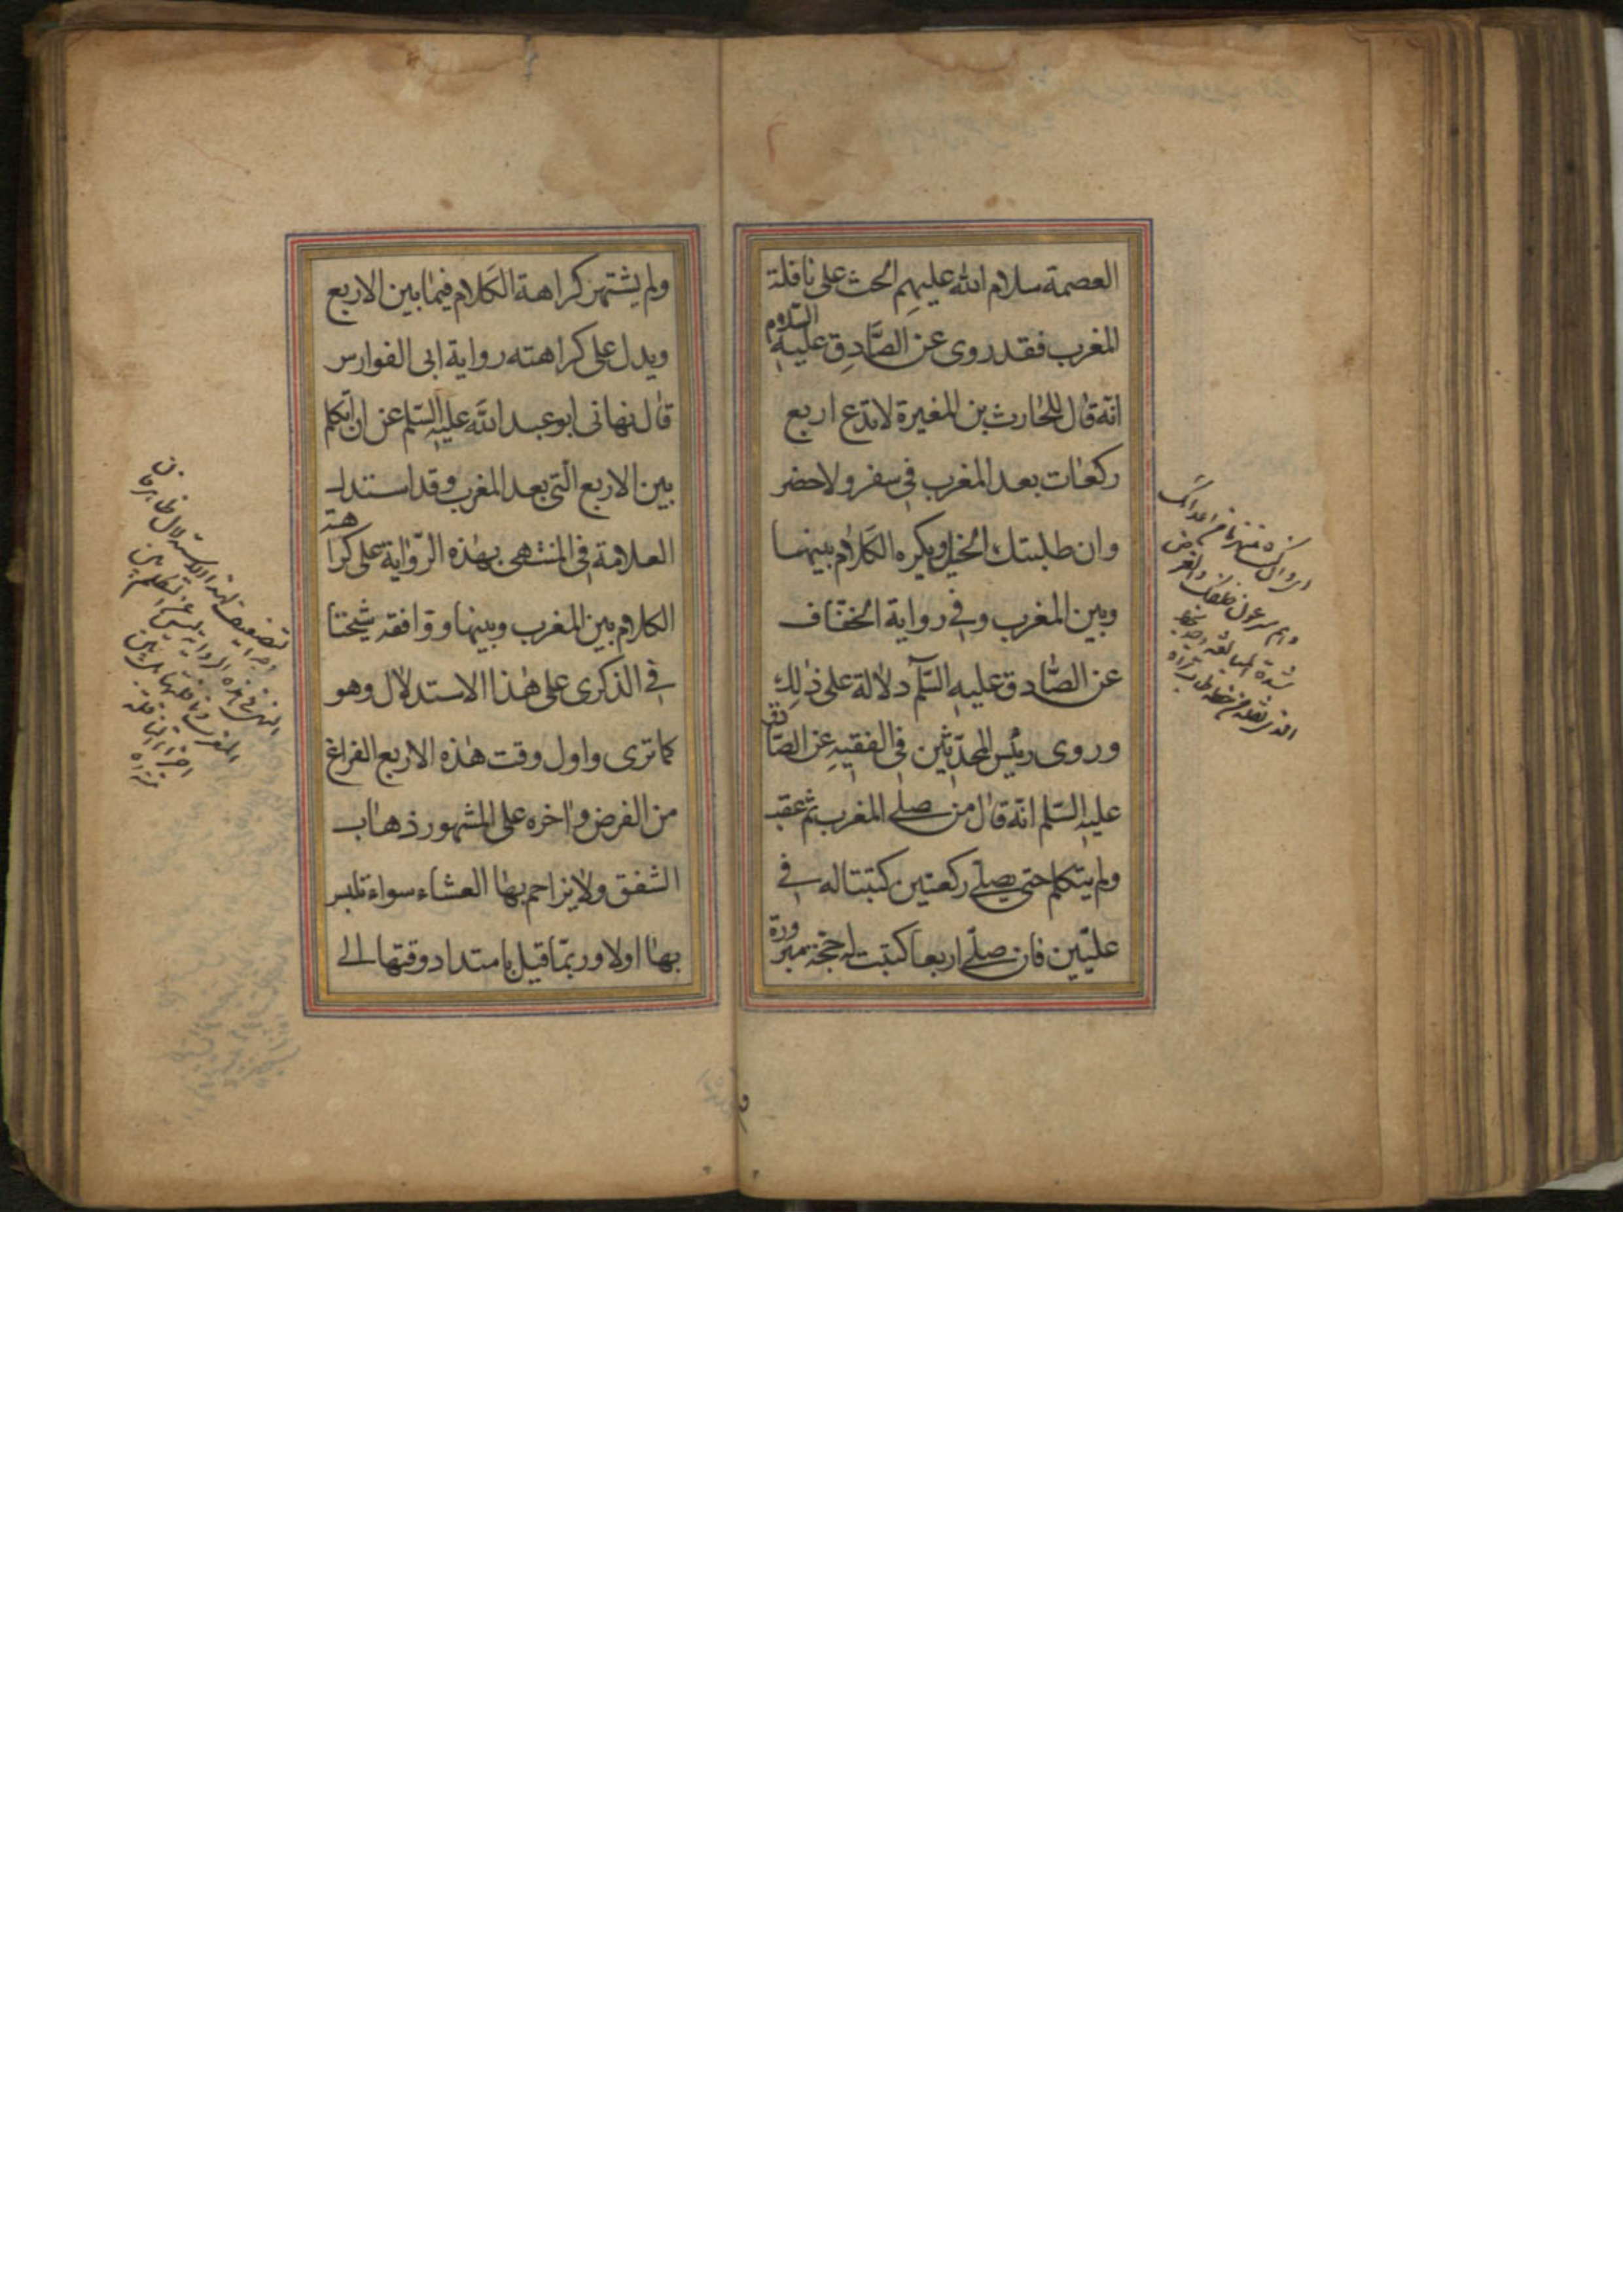 العصمة سلام الله عليهم الحث على نافلة
المغرب فقد روى عن الصَّادِق عليه السلام
انّه قال للحارث بن المغيرة لا تدع اربع
ركعات بعد المغرب في سفر ولا حضر
وان طلبتك الخيل ويكره الكلام بينهما
وبين المغرب وفي رواية الخفاف
عن الصَّادق عليه السَّلم دلالة على ذلِك
وروى رئيس المحدّثين في الفقيه عن الصّادق
عليه السّلم انّه قال من صلى المغرب ثم عقب
ولم يتكلم حتى يصلى ركعتين كتبتا له في
علّيّين فان صلّى اربعا كتبت له حجّة مبرورة
ولم يشتهر كراهة الكلام فيما بين الاربع
ويدل على كراهته رواية ابى الفوارس
قال نهانى ابو عبد الله عليه السّلم عن ان اتكلم
بين الاربع الّتى بعد المغرب وقد استدل
العلامة فى المنتهى بهذه الرّواية على كراهة
الكلام بين المغرب وبينها ووافقه شيخنا
في الذكرى على هذا الاستدلال وهو
كما ترى واول وقت هذه الاربع الفراغ
من الفرض واخره على المشهور ذهاب
الشفق ولا يزاحم بها العشاء سواء تلبس
بها اولا وربّما قيل بامتداد وقتها الى